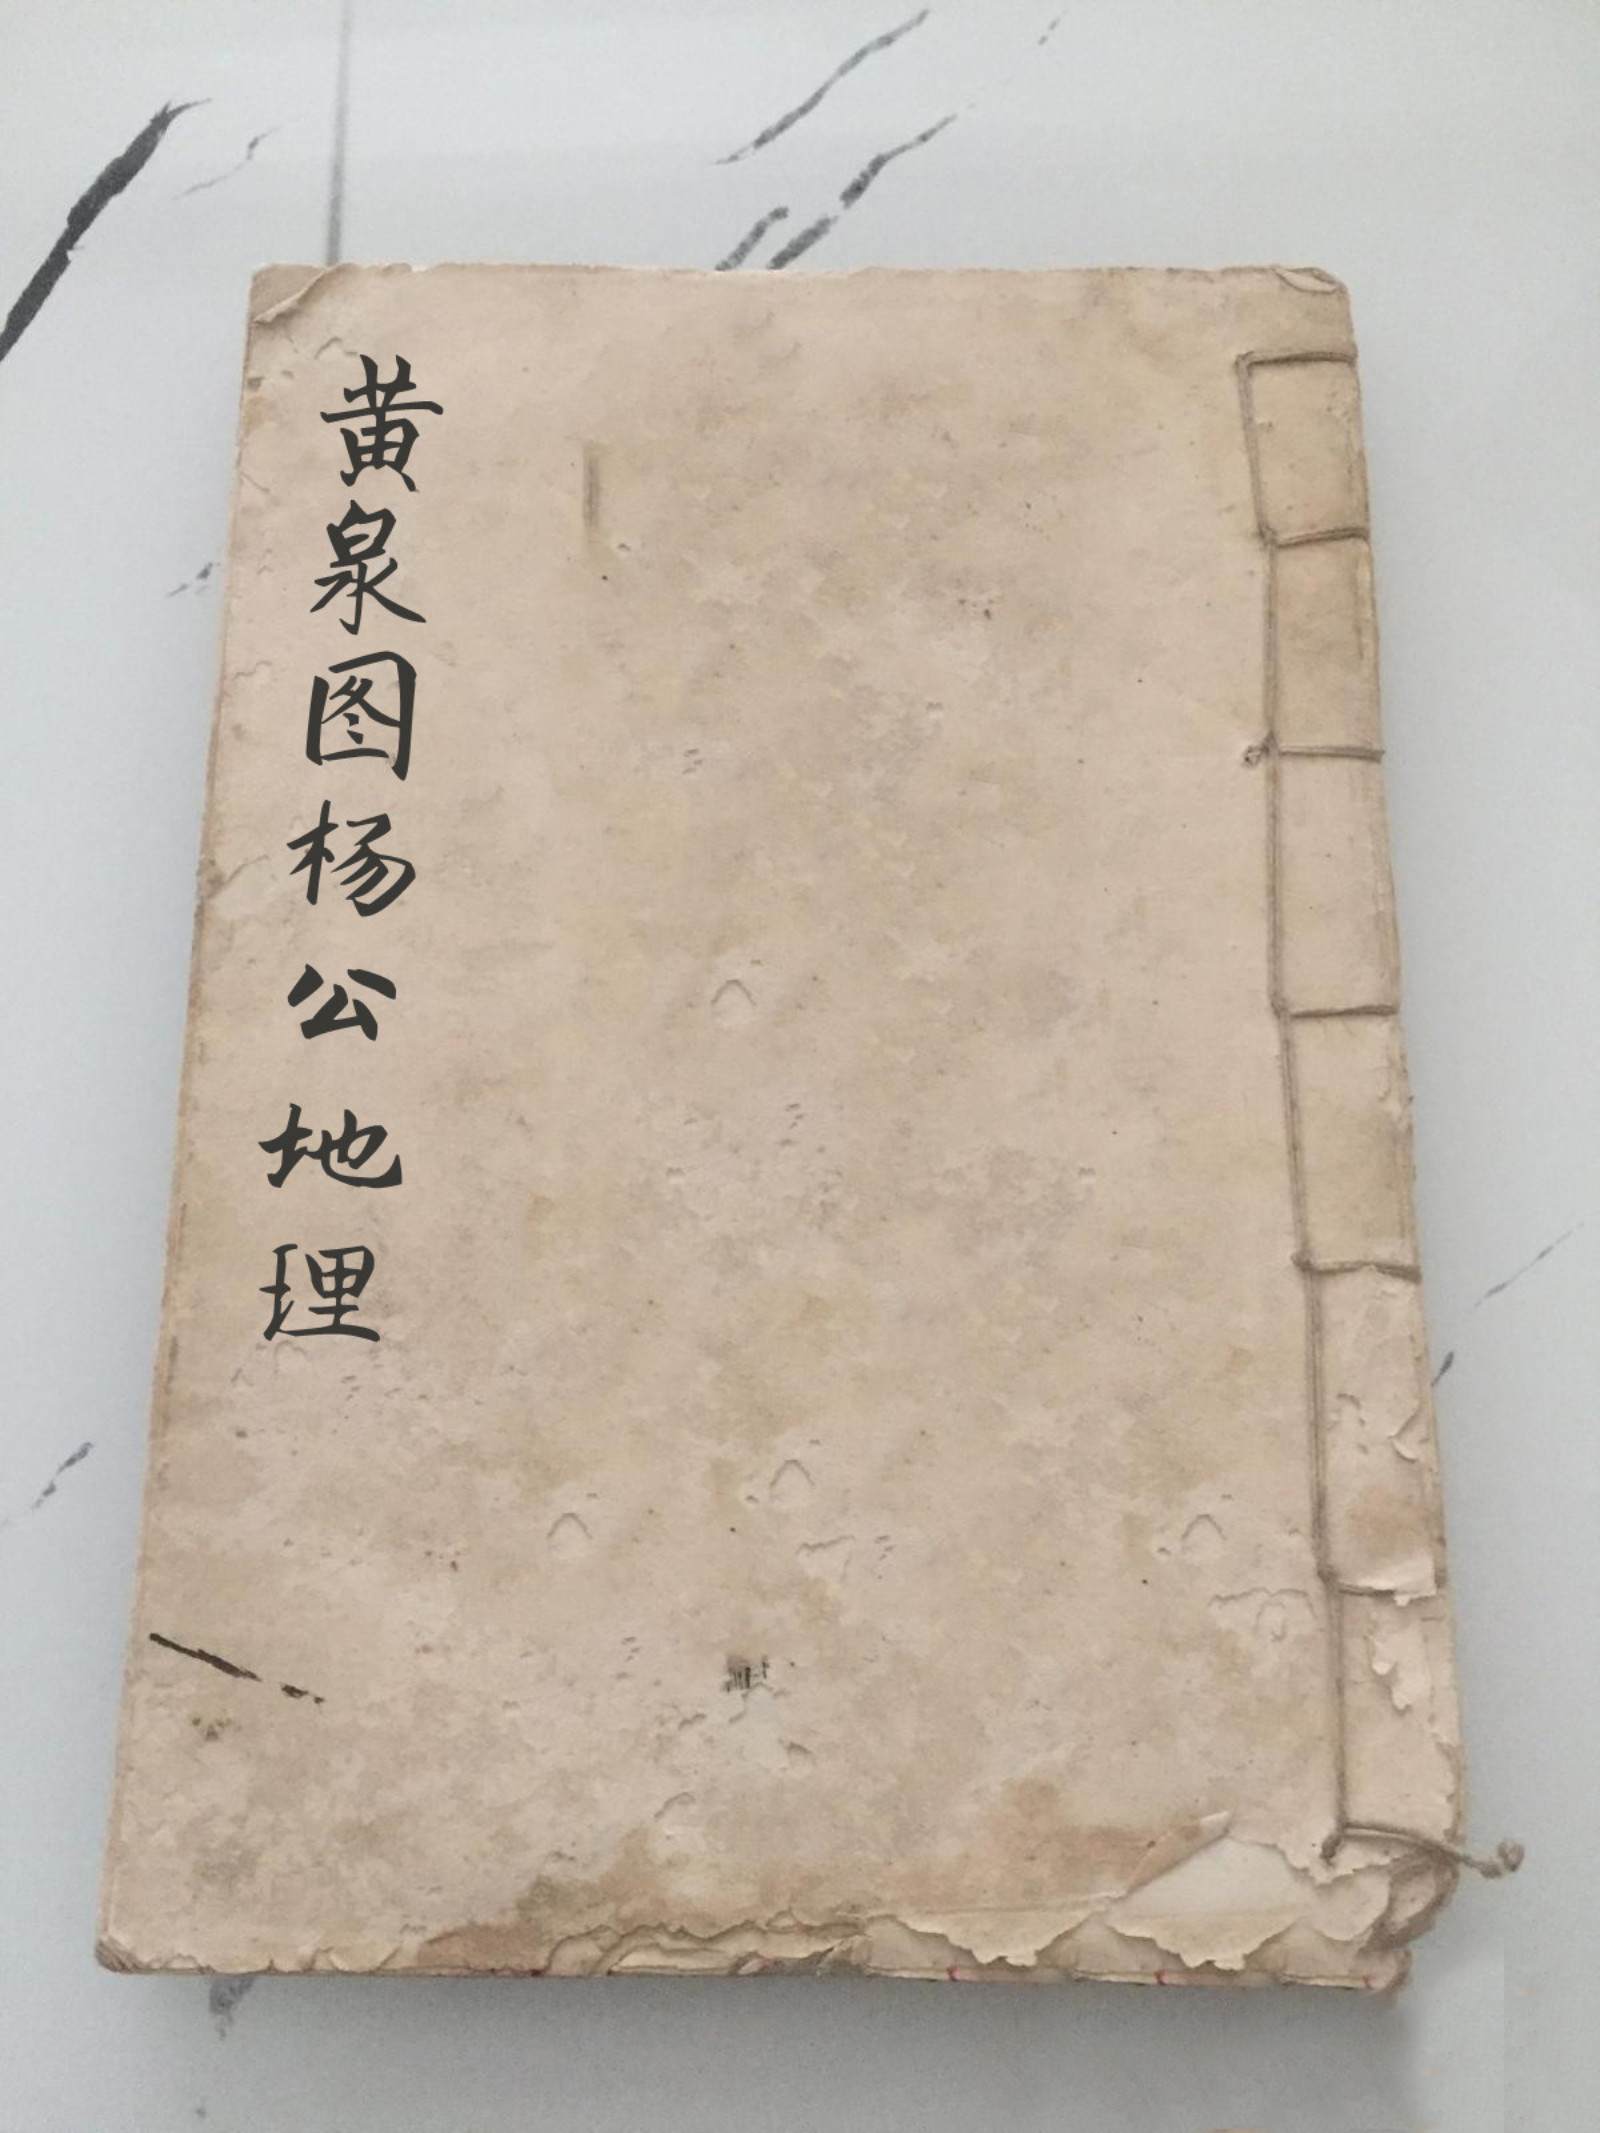 黄泉图杨公地理